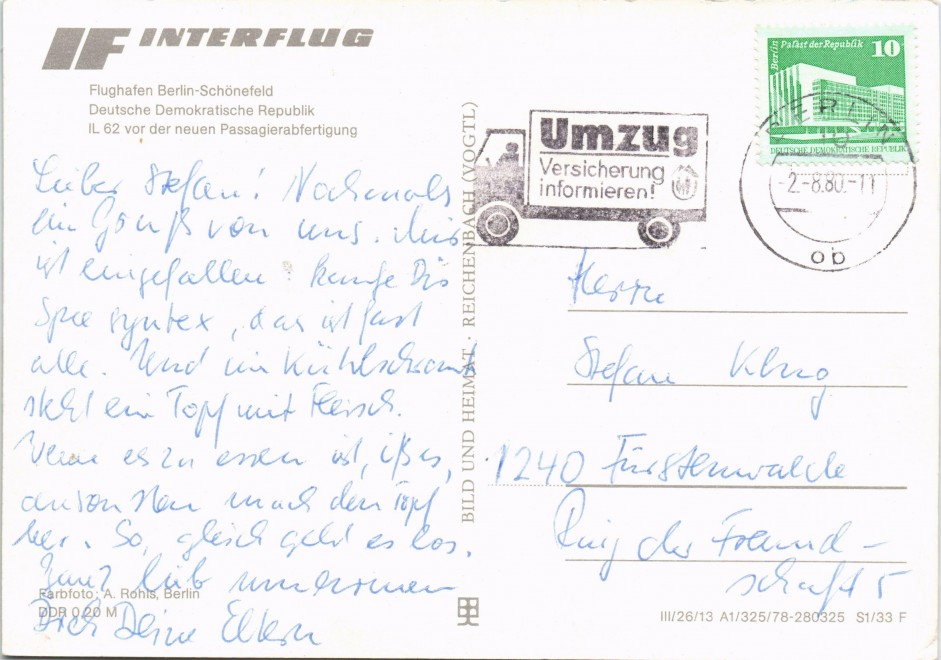 IF INTERFLUG
Flughafen Berlin-Schönefeld
Deutsche Demokratische Republik
IL 62 vor der neuen Passagierabfertigung
Lieber Stefan! Nochmals
ein Gruß von uns. Mir
ist eingefallen: kaufe Dir
Spee syntex, das ist fast
alle. Und im Kühlschrank
steht ein Topf mit Fleisch.
Wenn es zu essen ist, iß es,
ansonsten mach den Topf
leer. So, gleich geht es los.
Ganz lieb umarmen
Dich Deine Eltern
Farbfoto: A. Rohls, Berlin
DDR 0,20 M
BILD UND HEIMAT · REICHENBACH (VOGTL)
Umzug
Versicherung
informieren!
Berlin Palast der Republik 10
DEUTSCHE DEMOKRATISCHE REPUBLIK
BERLIN
-2.-8.80.-11
ob
Herrn
Stefan
1240 Fürstenwalde
Ring der Freund-
schaft 5
III/26/13 A1/325/78-280325 S1/33 F